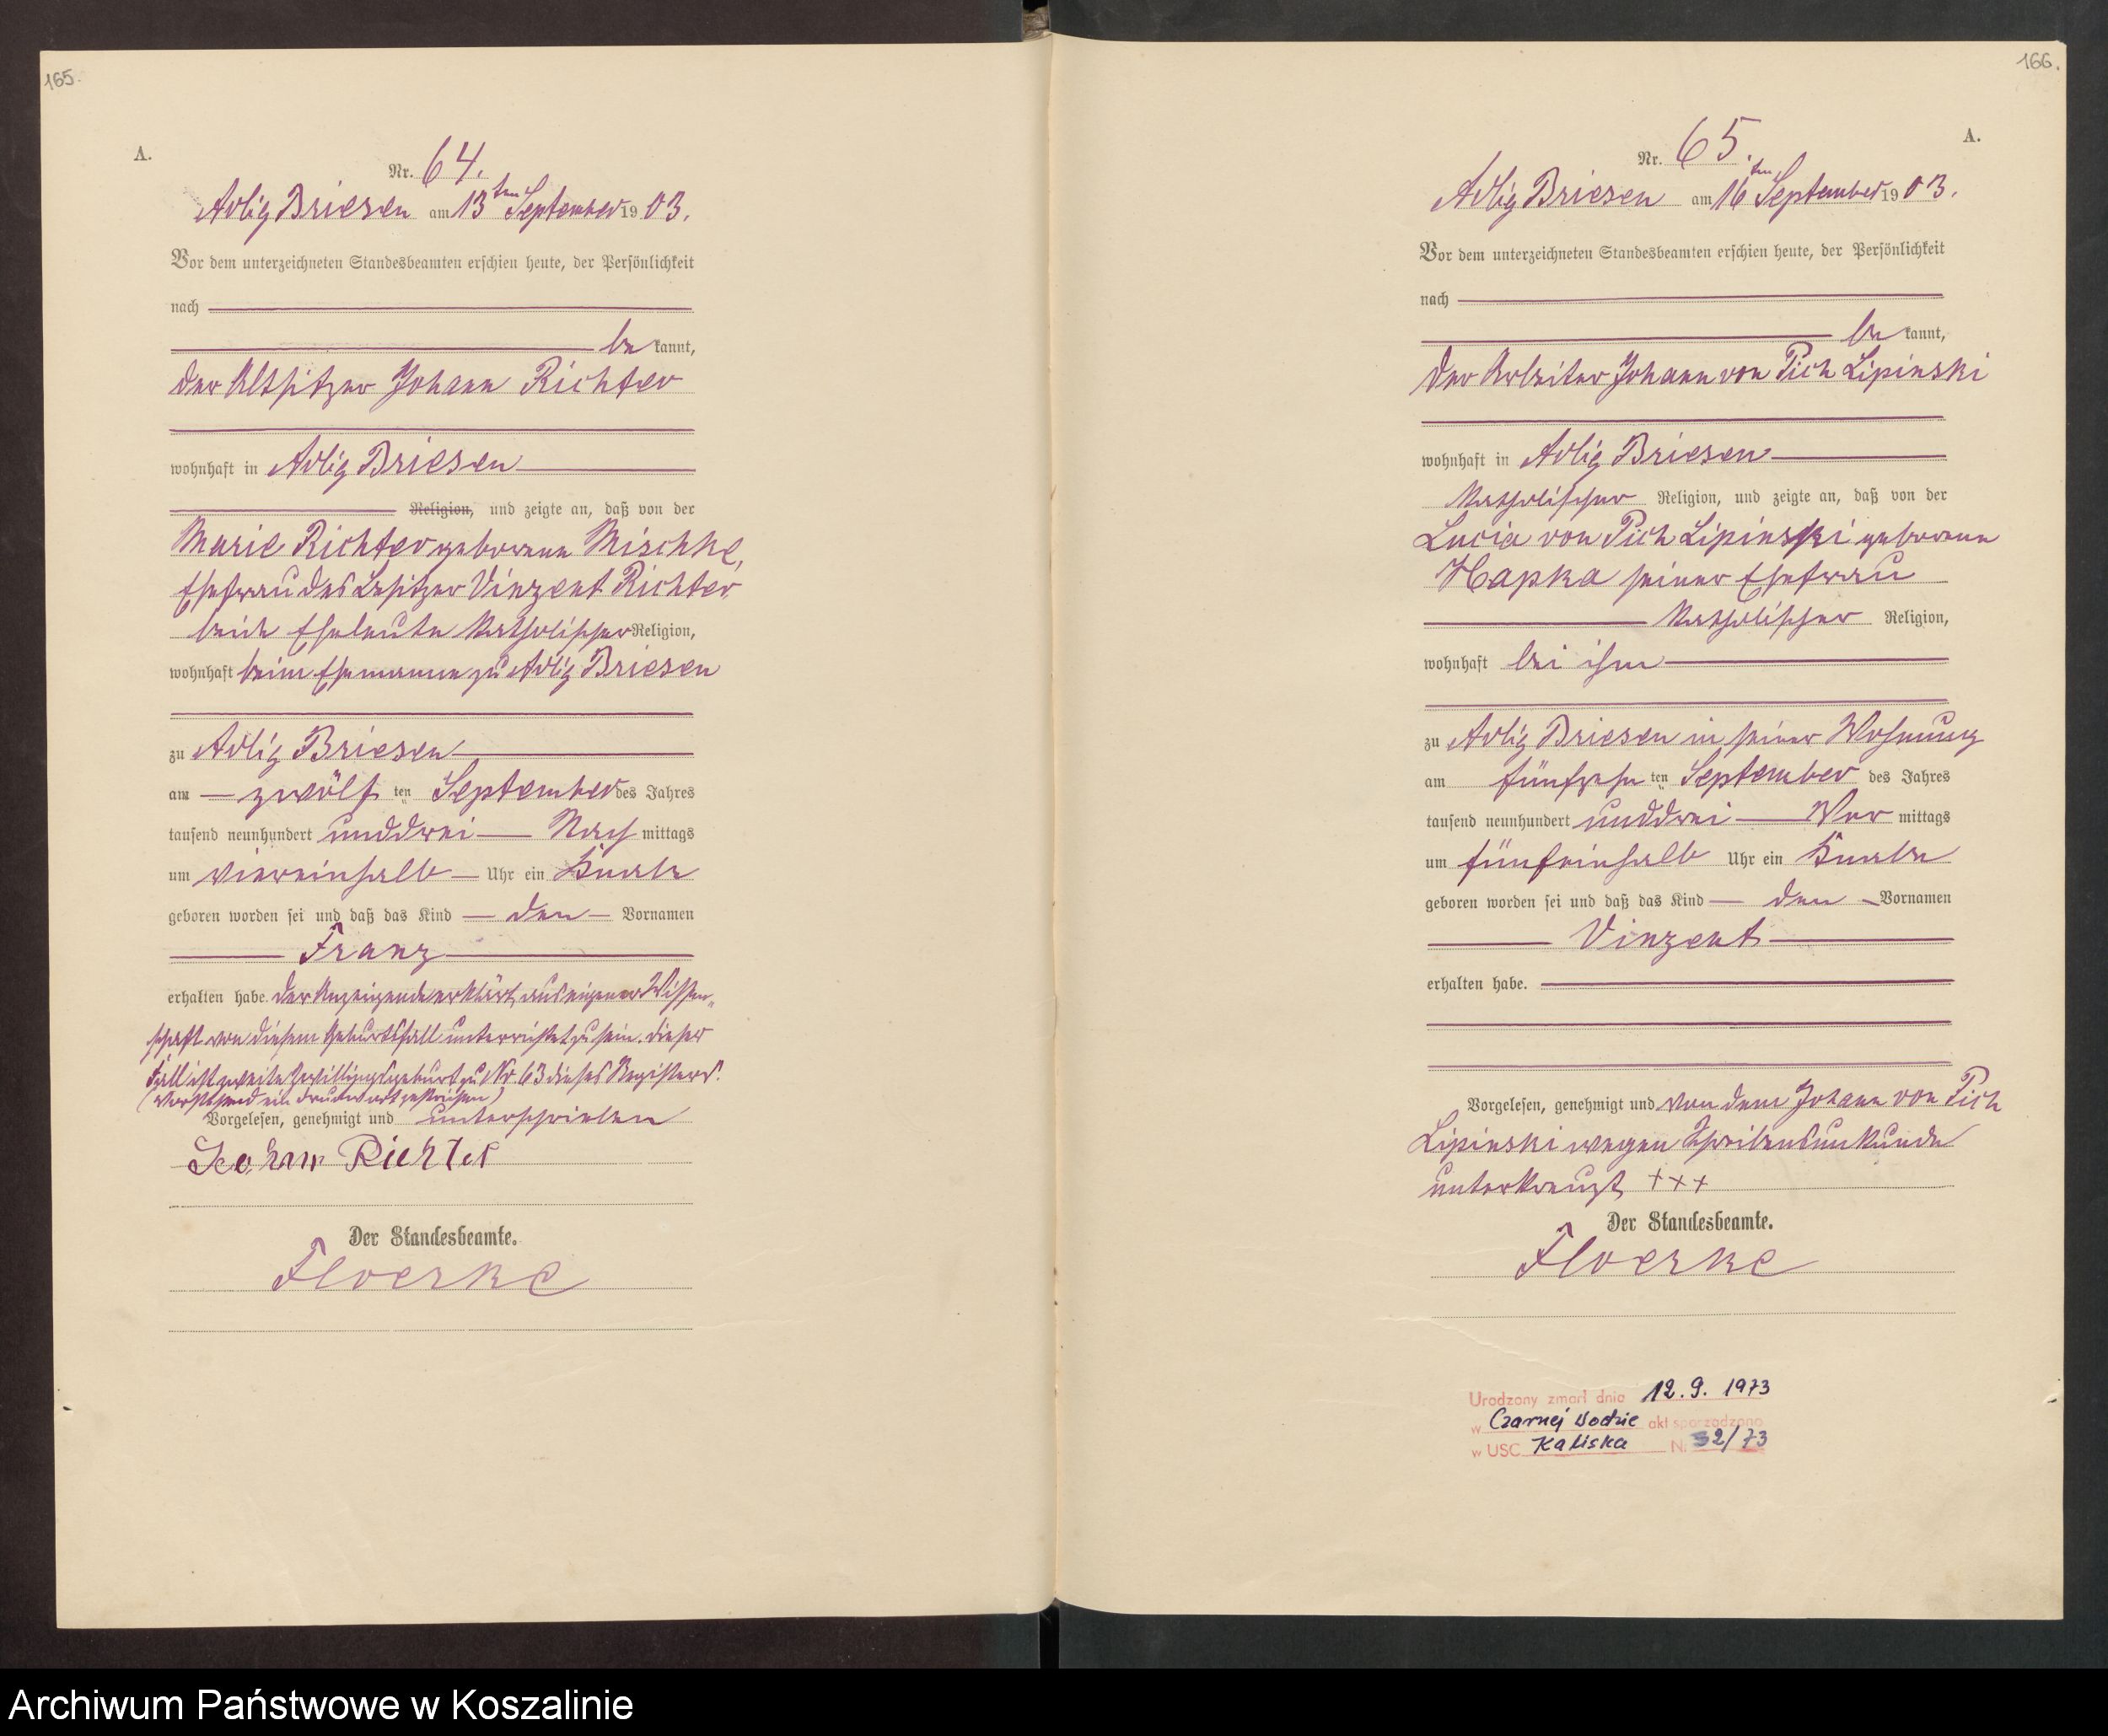 165.
A.
Nr. 64.
Adlig Briesen am 13ten September 1903.
Vor dem unterzeichneten Standesbeamten erschien heute, der Persönlichkeit
nach
be kannt,
der Altsitzer Johann Richter
wohnhaft in Adlig Briesen
Religion, und zeigte an, daß von der
Marie Richter geborene Mischke,
Ehefrau des Besitzer Vinzent Richter,
beide Eheleute katholischer Religion,
wohnhaft beim Ehemanne zu Adlig Briesen
zu Adlig Briesen
am zwölf ten September des Jahres
tausend neunhundert unddrei Nach mittags
um viereinhalb Uhr ein Knabe
geboren worden sei und daß das Kind den Vornamen
Franz
erhalten habe. Der Anzeigende erklärt, aus eigener Wissen-
schaft von diesem Geburtsfall unterrichtet zu sein. Dieser
Fall ist zweite Zwillingsgeburt zu Nr 63 dieses Registers.
(Vorstehend ein Druckwort gestrichen)
Vorgelesen, genehmigt und unterschrieben
Johann Richter
Der Standesbeamte.
Floerke
166.
A.
Nr. 65.
Adlig Briesen am 16ten September 1903.
Vor dem unterzeichneten Standesbeamten erschien heute, der Persönlichkeit
nach
be kannt,
der Arbeiter Johann von Pich Lipinski
wohnhaft in Adlig Briesen
katholischer Religion, und zeigte an, daß von der
Lucia von Pich Lipinski geborene
Hapka seiner Ehefrau
katholischer Religion,
wohnhaft bei ihm
zu Adlig Briesen in seiner Wohnung
am fünfzehn ten September des Jahres
tausend neunhundert unddrei Vor mittags
um fünfeinhalb Uhr ein Knabe
geboren worden sei und daß das Kind den Vornamen
Vinzent
erhalten habe.
Vorgelesen, genehmigt und von dem Johann von Pich
Lipinski wegen Schreibensunkunde
unterkreuzt +++
Der Standesbeamte.
Floerke
Urodzony zmarł dnia 12.9.1973
w Czarnej Wodzie akt sporządzono
w USC Kaliska Nr 32/73
Archiwum Państwowe w Koszalinie